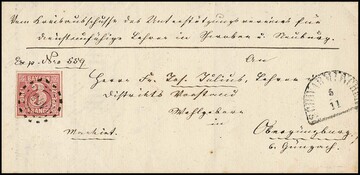 Vom Kreisausschusse des Unterstützungsvereines für
dienstunfähige Lehrer in Schwaben u. Neuburg.
Ex. p. Nro 559
An
Herrn Fr. Jos. Julius, Lehrer
Distrikts Vorstand
Wohlgeboren
in
Obergünzburg
b. Günzach.
3
5
11